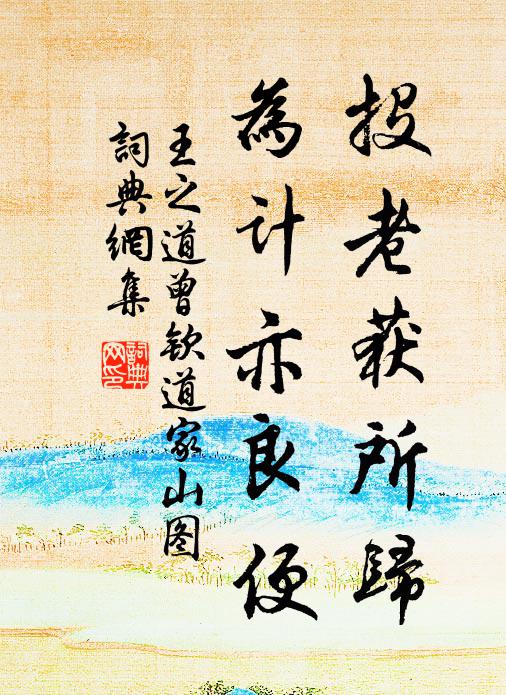 投老获所歸
為計亦良便
王之道曾欽道家山图
詞典網集
詞典网印